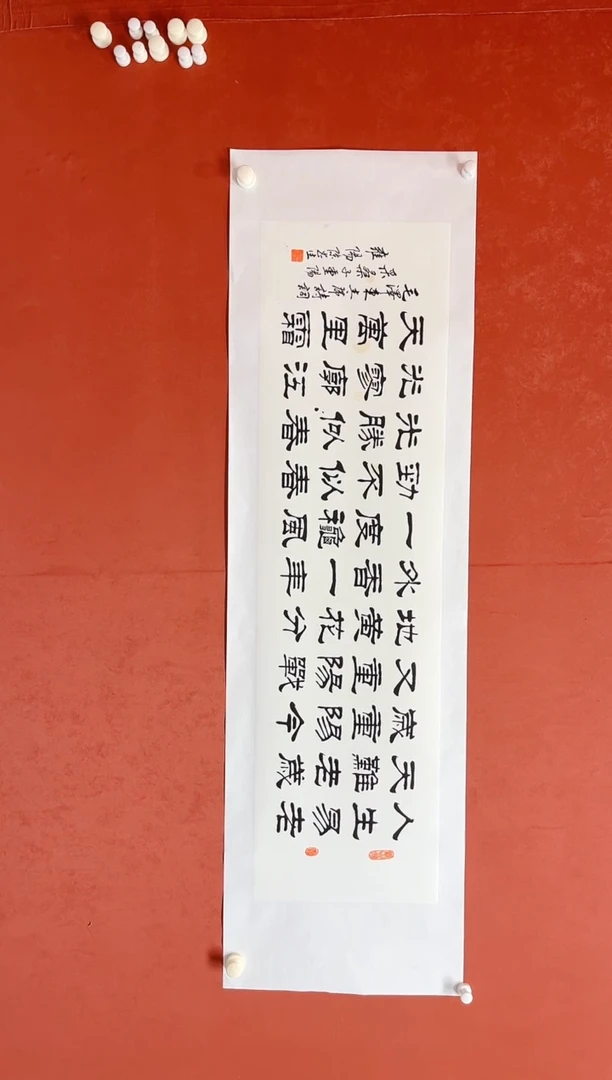 人生易老
天難老歲
歲重陽今
又重陽戰
地黄花分
外香一年
一度龝風
勁不似春
光勝似春
光寥廓江
天萬里霜
毛澤東主席詩詞
采桑子重陽
雍陽